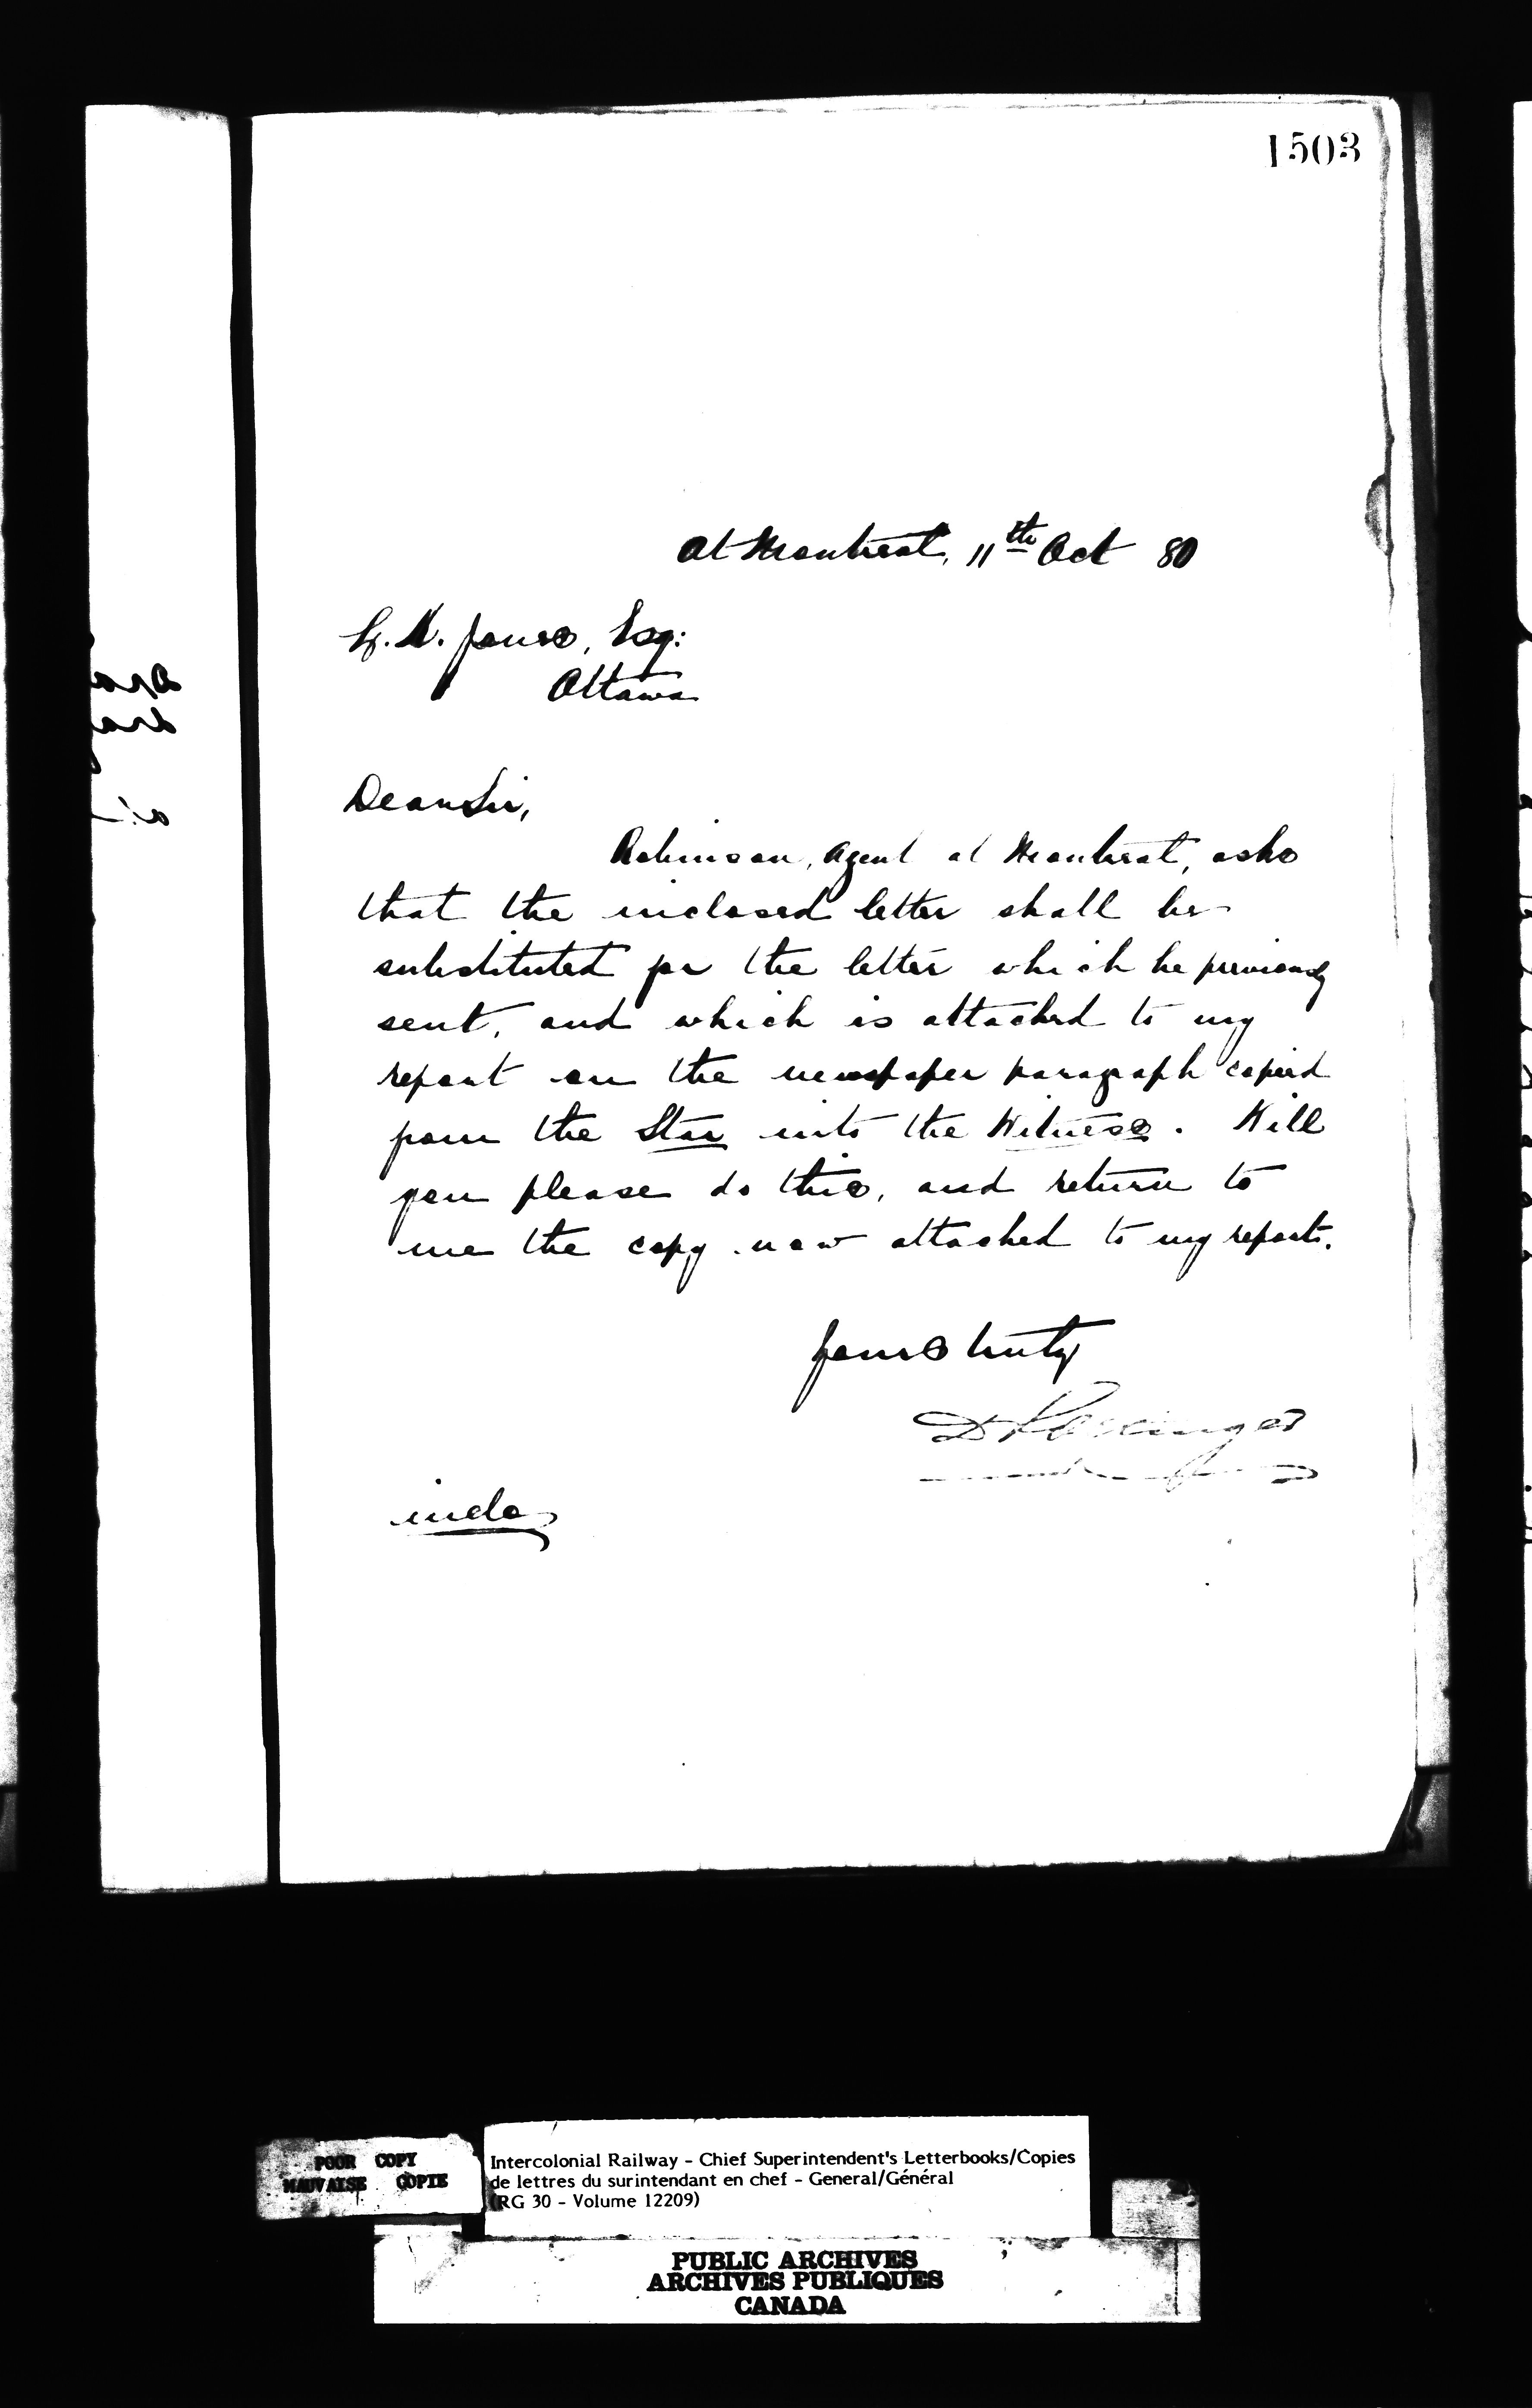 1503
At Montreal, 11th Oct 80
L. K. Jones, Esq:
Ottawa
Dear Sir,
Robinson, Agent at Montreal, asks
that the inclosed letter shall be
substituted for the letter which he previously
sent, and which is attached to my
report on the newspaper paragraph copied
from the Star into the Witness. Will
you please do this, and return to
me the copy now attached to my report.
Yours truly
D Pottinger
inclo
POOR COPY
MAUVAISE COPIE
Intercolonial Railway - Chief Superintendent's Letterbooks/Copies
de lettres du surintendant en chef - General/Général
(RG 30 - Volume 12209)
PUBLIC ARCHIVES
ARCHIVES PUBLIQUES
CANADA